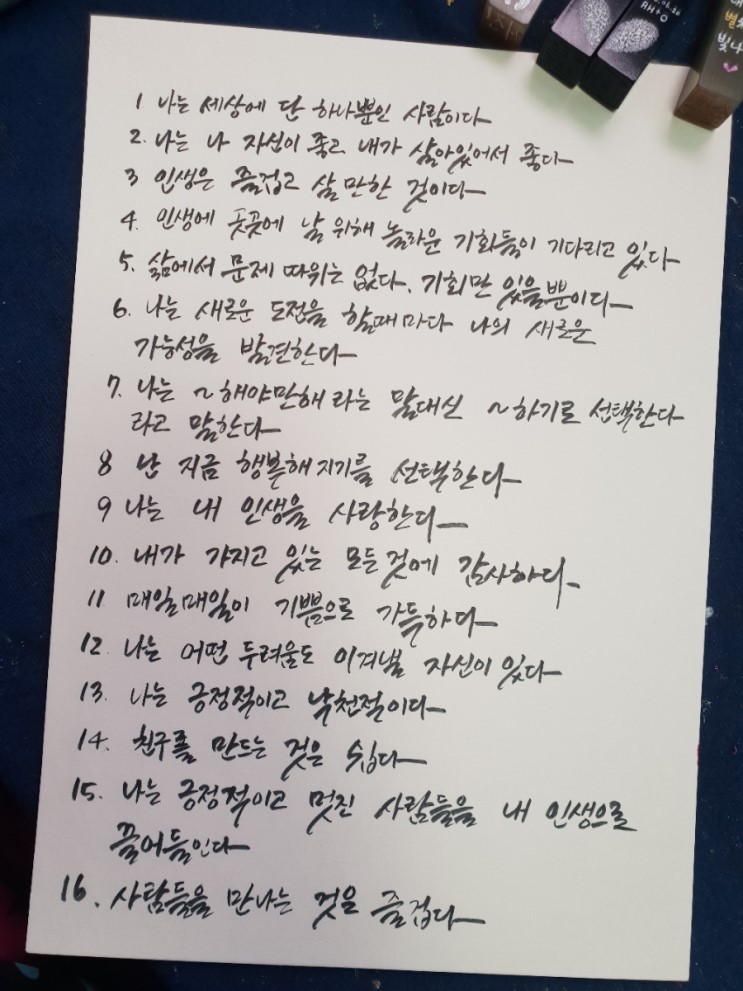 1 나는 세상에 단 하나뿐인 사람이다
2. 나는 나 자신이 좋고 내가 살아있어서 좋다
3 인생은 즐겁고 살 만한 것이다
4. 인생에 곳곳에 날 위해 놀라운 기회들이 기다리고 있다
5. 삶에서 문제 따위는 없다. 기회만 있을뿐이다
6. 나는 새로운 도전을 할때마다 나의 새로운
가능성을 발견한다
7. 나는 ~해야만해 라는 말대신 ~하기로 선택한다
라고 말한다
8 난 지금 행복해지기를 선택한다
9 나는 내 인생을 사랑한다
10. 내가 가지고 있는 모든것에 감사하다
11 매일매일이 기쁨으로 가득하다
12. 나는 어떤 두려움도 이겨낼 자신이 있다
13. 나는 긍정적이고 낙천적이다
14. 친구를 만드는 것은 쉽다
15. 나는 긍정적이고 멋진 사람들을 내 인생으로
끌어들인다
16. 사람들을 만나는 것은 즐겁다